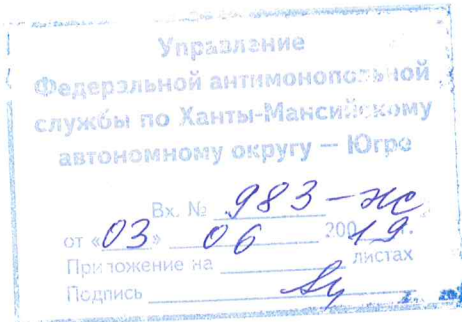 Управление
Федеральной антимонопольной
службы по Ханты-Мансийскому
автономному округу — Югре
Вх. № 983-жс
от «03» 06 2019 г.
Приложение на листах
Подпись